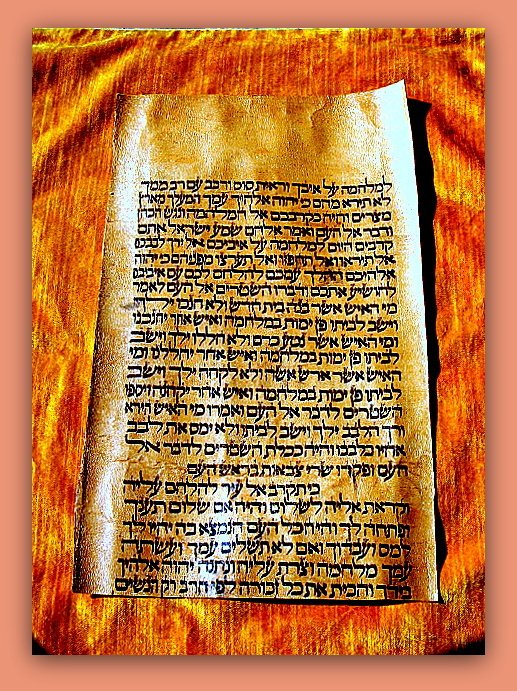 למלחמה על איבך וראית סוס ורכב עם רב ממך
לא תירא מהם כי יהוה אלהיך עמך המעלך מארץ
מצרים והיה כקרבכם אל המלחמה ונגש הכהן
ודבר אל העם ואמר אלהם שמע ישראל אתם
קרבים היום למלחמה על איביכם אל ירך לבבכם
אל תיראו ואל תחפזו ואל תערצו מפניהם כי יהוה
אלהיכם ההלך עמכם להלחם לכם עם איביכם
להושיע אתכם ודברו השטרים אל העם לאמר
מי האיש אשר בנה בית חדש ולא חנכו ילך
וישב לביתו פן ימות במלחמה ואיש אחר יחנכנו
ומי האיש אשר נטע כרם ולא חללו ילך וישב
לביתו פן ימות במלחמה ואיש אחר יחללנו ומי
האיש אשר ארש אשה ולא לקחה ילך וישב
לביתו פן ימות במלחמה ואיש אחר יקחנה ויספו
השטרים לדבר אל העם ואמרו מי האיש הירא
ורך הלבב ילך וישב לביתו ולא ימס את לבב
אחיו כלבבו והיה ככלת השטרים לדבר אל
העם ופקדו שרי צבאות בראש העם
כי תקרב אל עיר להלחם עליה
וקראת אליה לשלום והיה אם שלום תענך
ופתחה לך והיה כל העם הנמצא בה יהיו לך
למס ועבדוך ואם לא תשלים עמך ועשתה
עמך מלחמה וצרת עליה ונתנה יהוה אלהיך
בידך והכית את כל זכורה לפי חרב רק הנשים